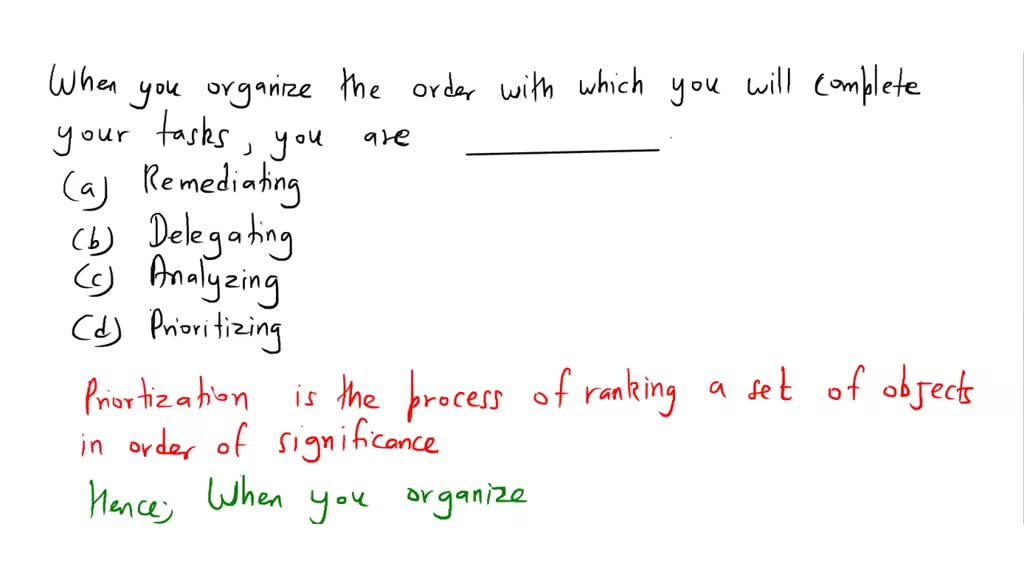 When you organize the order with which you will complete
your tasks, you are ________
(a) Remediating
(b) Delegating
(c) Analyzing
(d) Prioritizing
Priortization is the process of ranking a set of objects
in order of significance
Hence; When you organize